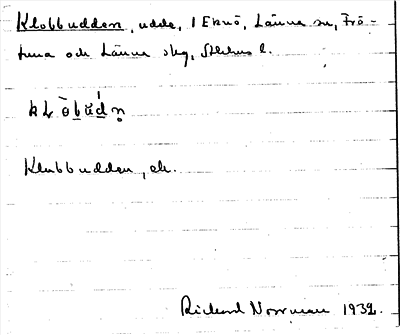 Klobbudden, udde, i Eknö, Länna sn, Frö-
tuna och Länna skg, Sthlms l.
kLòbu̇́dn̥
Klubbudden, ek.
Rickard Norrman 1932.